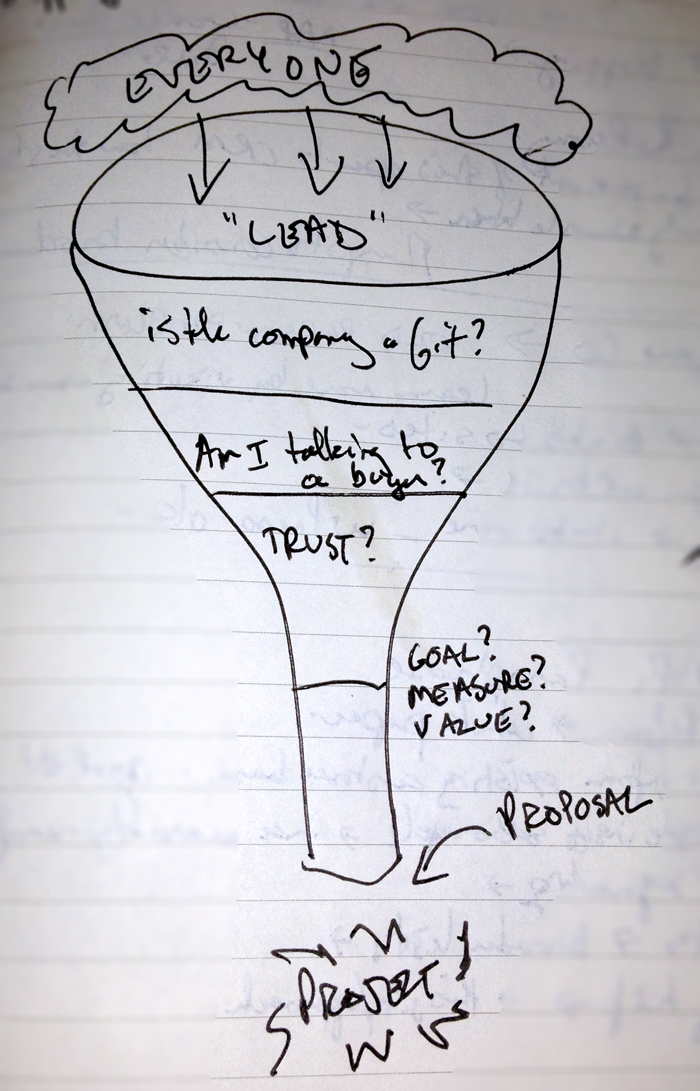 EVERYONE
"LEAD"
is the company a fit?
Am I talking to
a buyer?
TRUST?
GOAL?
MEASURE?
VALUE?
PROPOSAL
PROJECT!